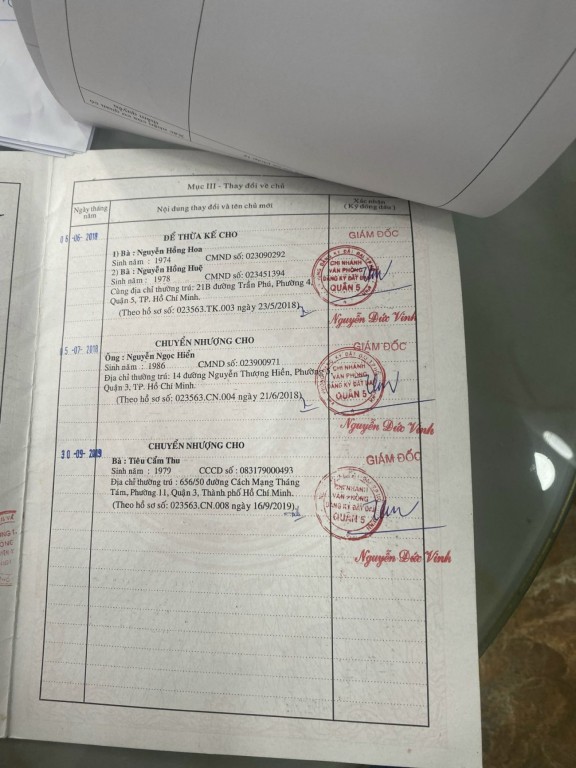 Mục III - Thay đổi về chủ
Ngày tháng năm
Nội dung thay đổi và tên chủ mới
Xác nhận
( Ký đóng dấu )
06-06-2018
ĐỂ THỪA KẾ CHO
1) Bà : Nguyễn Hồng Hoa
Sinh năm : 1974 CMND số: 023090292
2) Bà : Nguyễn Hồng Huệ
Sinh năm : 1978 CMND số: 023451394
Cùng địa chỉ thường trú: 21B đường Trần Phú, Phường 4,
Quận 5, TP. Hồ Chí Minh.
(Theo hồ sơ số: 023563.TK.003 ngày 23/5/2018)
GIÁM ĐỐC
CHI NHÁNH
VĂN PHÒNG
ĐĂNG KÝ ĐẤT ĐAI
QUẬN 5
Nguyễn Đức Vinh
05-07-2018
CHUYỂN NHƯỢNG CHO
Ông : Nguyễn Ngọc Hiển
Sinh năm : 1986 CMND số: 023900971
Địa chỉ thường trú: 14 đường Nguyễn Thượng Hiền, Phường
Quận 3, TP. Hồ Chí Minh.
(Theo hồ sơ số: 023563.CN.004 ngày 21/6/2018)
GIÁM ĐỐC
CHI NHÁNH
VĂN PHÒNG
ĐĂNG KÝ ĐẤT ĐAI
QUẬN 5
Nguyễn Đức Vinh
30-09-2019
CHUYỂN NHƯỢNG CHO
Bà : Tiêu Cẩm Thu
Sinh năm : 1979 CCCD số : 083179000493
Địa chỉ thường trú : 656/50 đường Cách Mạng Tháng
Tám, Phường 11, Quận 3, Thành phố Hồ Chí Minh.
(Theo hồ sơ số: 023563.CN.008 ngày 16/9/2019)
GIÁM ĐỐC
CHI NHÁNH
VĂN PHÒNG
ĐĂNG KÝ ĐẤT ĐAI
QUẬN 5
Nguyễn Đức Vinh